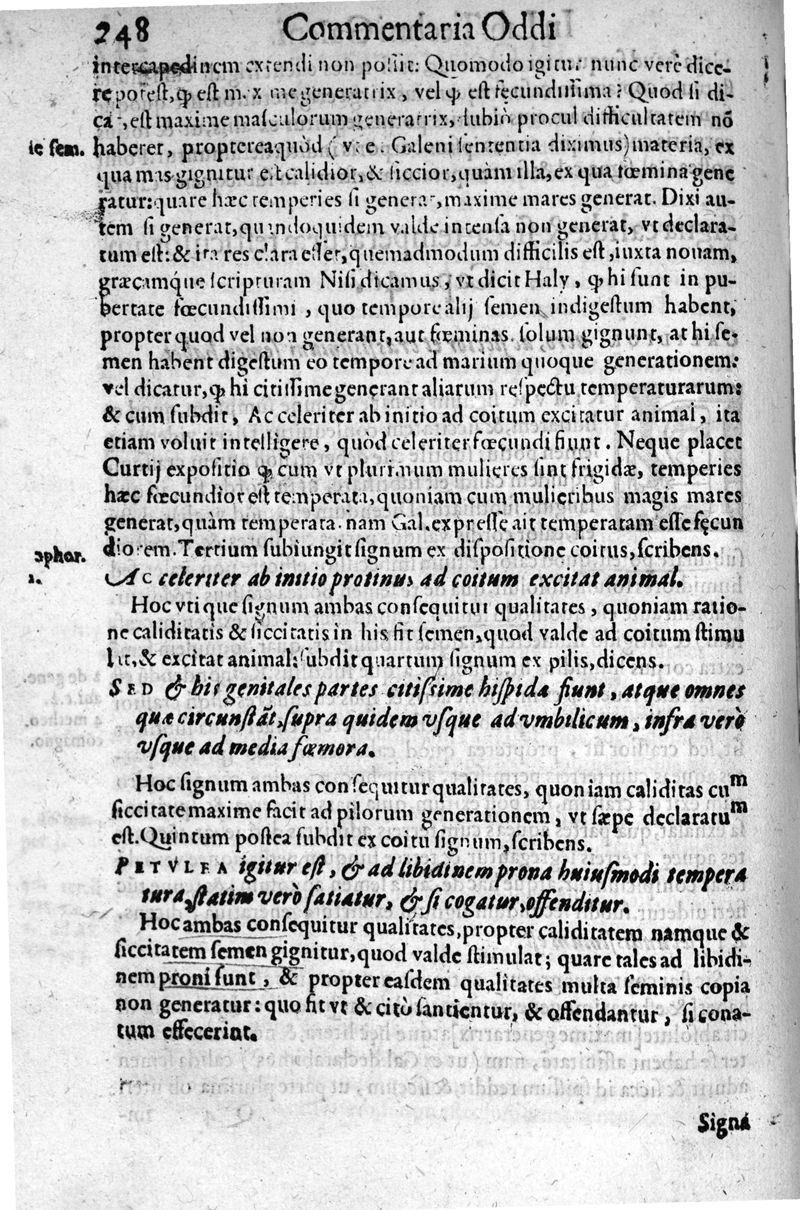 248 Commentaria Oddi
intercapedinem extendi non possit: Quomodo igitur nunc verè dice-
re potest, ꝙ est m.x me generatrix, vel ꝙ est fęcundissima? Quod si di-
ca, est maxime masculorum generatrix, dubiò procul difficultatem nō
ie sem.
haberet, proptereaquòd (v: e. Galeni sententia diximus) materia, ex
qua mas gignitur est calidior, & siccior, quàm illa, ex qua fœmina gene
ratur: quare hæc temperies si generat, maxime mares generat. Dixi au-
tem si generat, quandoquidem valde intensa non generat, vt declara-
tum est: & ita res clara esset, quemadmodum difficilis est, iuxta nouam,
græcamq́ue scripturam Nisi dicamus, vt dicit Haly, ꝙ hi sunt in pu-
bertate fœcundissimi, quo tempore alij semen indigestum habent,
propter quod vel non generant, aut fœminas solum gignunt, at hi se-
men habent digestum eo tempore ad marium quoque generationem:
vel dicatur, ꝙ hi citissime generant aliarum respectu temperaturarum:
& cum subdit, Ac celeriter ab initio ad coitum excitatur animal, ita
etiam voluit intelligere, quòd celeriter fœcundi fiunt. Neque placet
Curtij expositio ꝙ cum vt plurimum mulieres sint frigidæ, temperies
hæc fœcundior est temperata, quoniam cum mulieribus magis mares
generat, quàm temperata. nam Gal. expresse ait temperatam esse fęcun
diorem. Tertium subiungit signum ex dispositione coitus, scribens.
aphor.
1.
Ac celeriter ab initio protinus ad coitum excitat animal.
Hoc vtique signum ambas consequitur qualitates, quoniam ratio-
ne caliditatis & siccitatis in his fit semen, quod valde ad coitum stimu
lat, & excitat animal: subdit quartum signum ex pilis, dicens.
SED & his genitales partes citissime hispida fiunt, atque omnes
quæ circunstāt, supra quidem vsque ad vmbilicum, infra verò
vsque ad media fœmora.
Hoc signum ambas consequitur qualitates, quoniam caliditas cuᵐ
siccitate maxime facit ad pilorum generationem, vt sæpe declaratuᵐ
est. Quintum postea subdit ex coitu signum, scribens.
PETVLEA igitur est, & ad libidinem prona huiusmodi tempera
tura, statim verò satiatur, & si cogatur, offenditur.
Hoc ambas consequitur qualitates, propter caliditatem namque &
siccitatem semen gignitur, quod valde stimulat; quare tales ad libidi-
nem proni sunt, & propter easdem qualitates multa seminis copia
non generatur: quo fit vt & citò santientur, & offendantur, si cona-
tum effecerint.
Signa